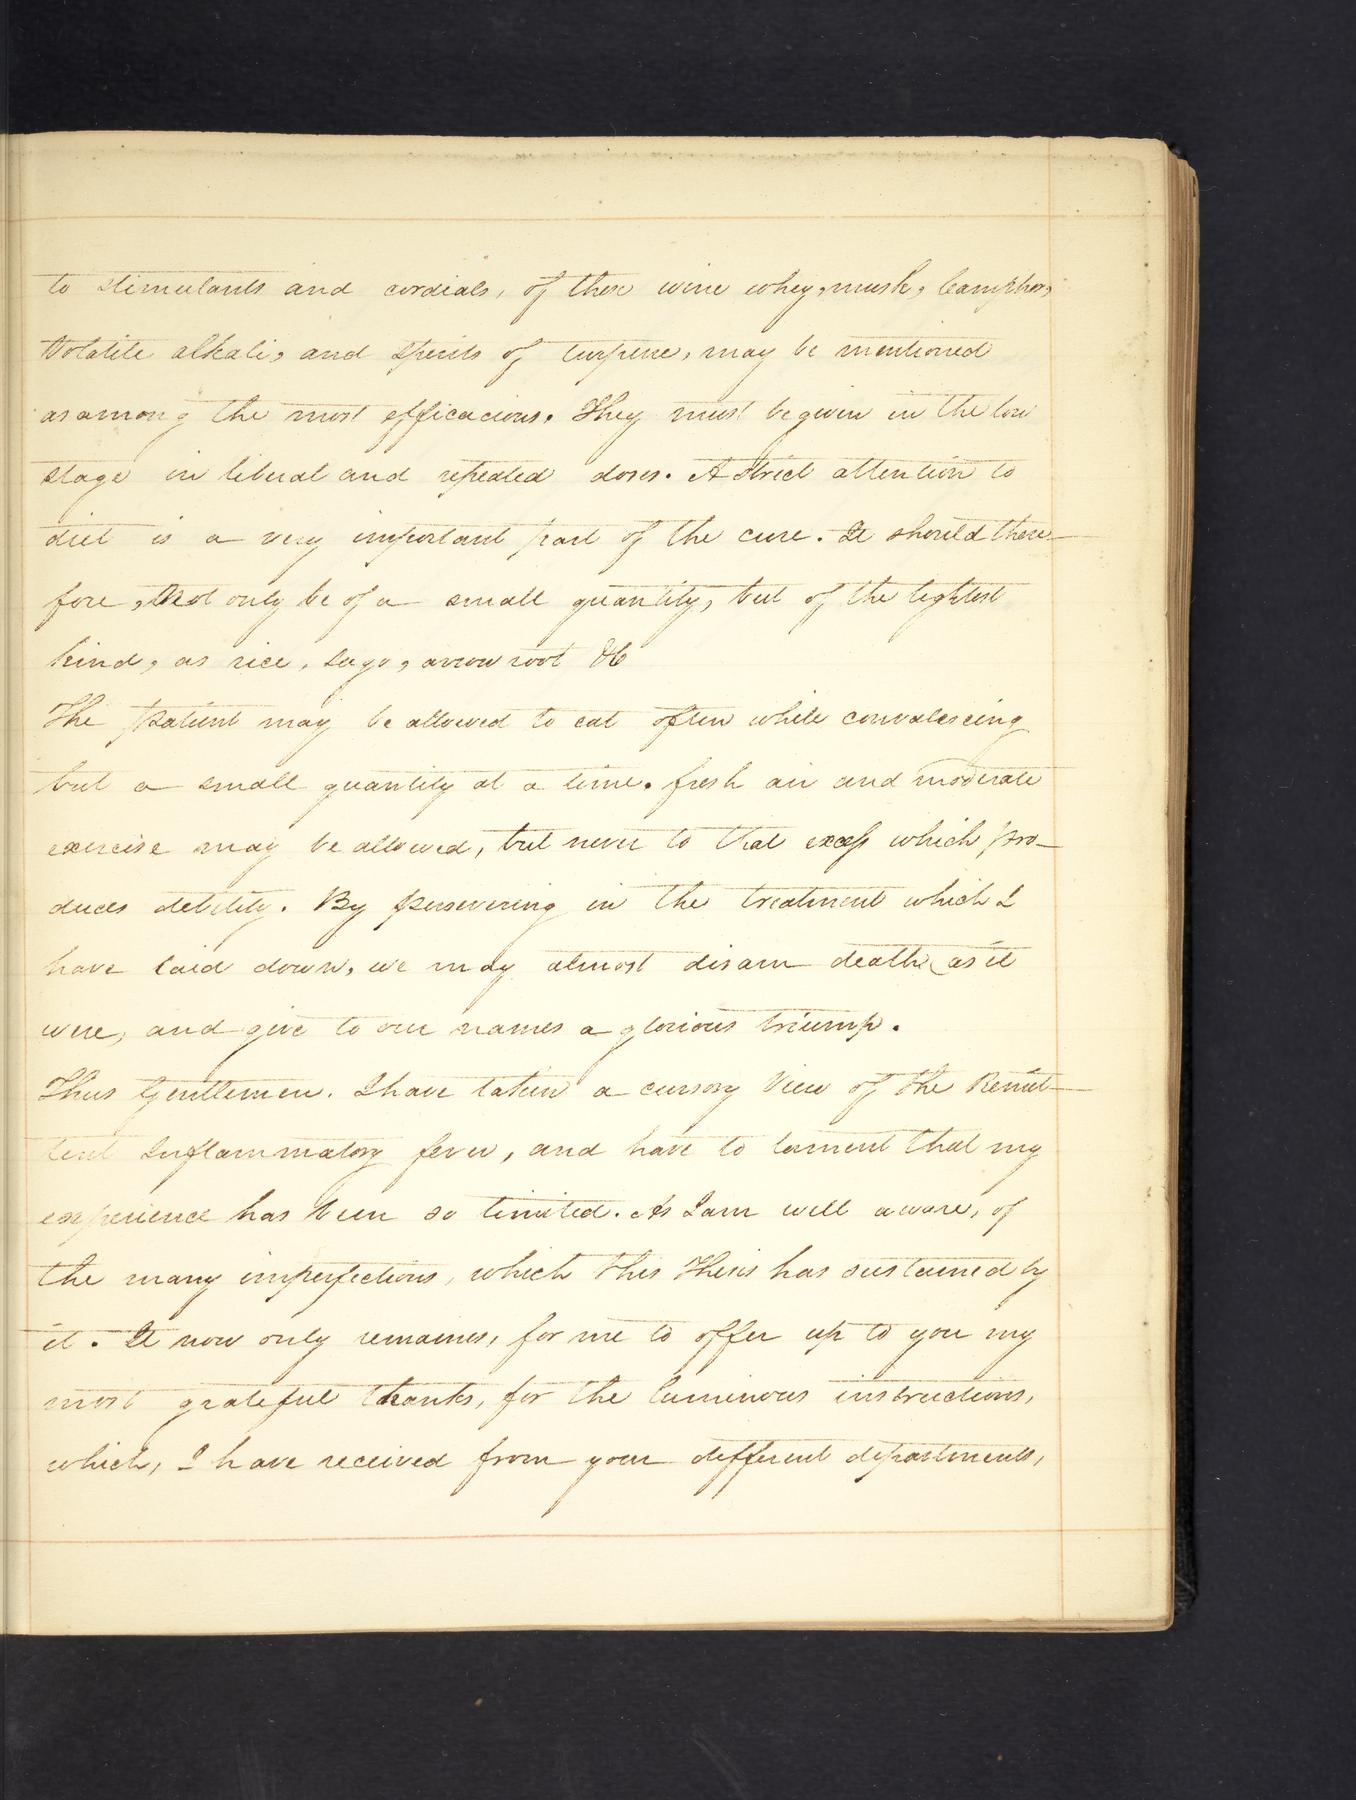 to stimulants and cordials, of these wine whey, musk, Camphor,
Volatile alkali, and spirits of turpine, may be mentioned
as among the most efficacious. They must be given in the low
stage in liberal and repeated doses. A strict attention to
diet is a very important part of the cure. It should there-
fore, Not only be of a small quantity, but of the lightest
kind, as rice, sago, arrow root &c
The patient may be allowed to eat often while convalescing
but a small quantity at a time. fresh air and moderate
exercise may be allowed, but never to that excess which pro-
duces debility. By persevering in the treatment which I
have laid down, we may almost disarm death (as it
were, and give to our names a glorious triump.
Thus Gentlemen. I have taken a cursory View of the Remit-
tent Inflammatory fever, and have to lament that my
experience has been so limited. As I am well aware, of
the many imperfections, which this Thesis has sustained by
it. It now only remaines, for me to offer up to you my
most grateful thanks, for the luminous instructions,
which, I have received from your different departments,